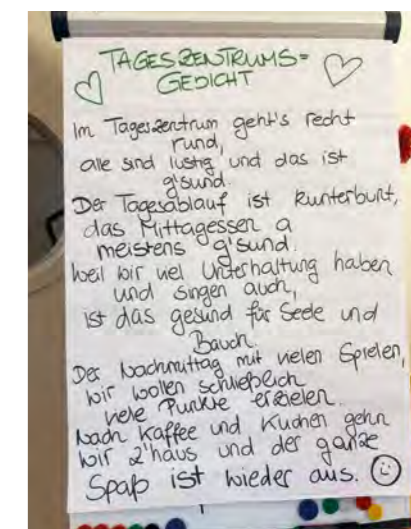 TAGESZENTRUMS=
GEDICHT
Im Tageszentrum geht's recht
rund,
alle sind lustig und das ist
g'sund.
Der Tagesablauf ist kunterbunt,
das Mittagessen a
meistens g'sund.
Weil wir viel Unterhaltung haben
und singen auch,
ist das gesund für Seele und
Bauch.
Der Nachmittag mit vielen Spielen,
wir wollen schließlich
viele Punkte erzielen.
Nach Kaffee und Kuchen gehn
wir z'haus und der ganze
Spaß ist wieder aus.